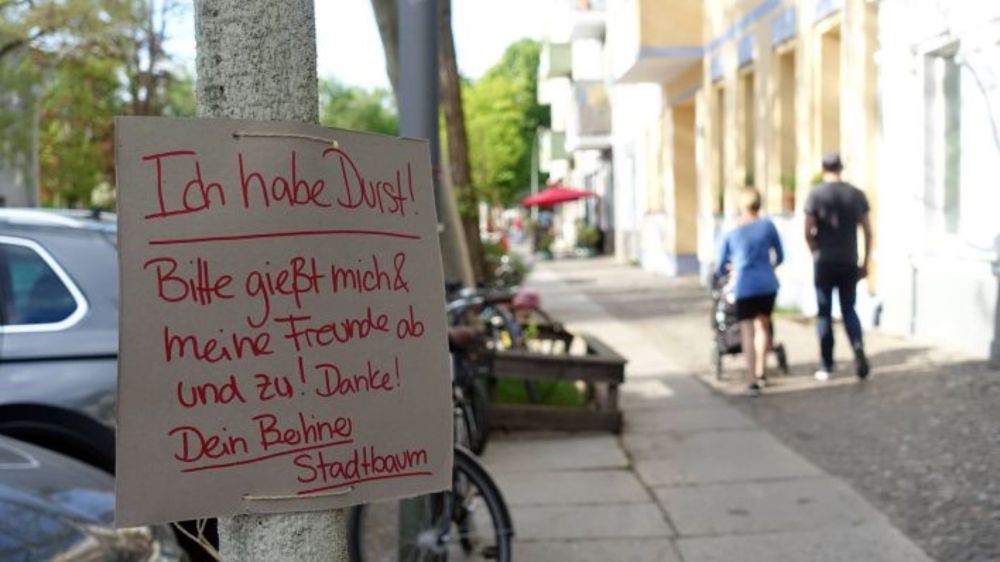 Ich habe Durst!
Bitte gießt mich &
meine Freunde ab
und zu! Danke!
Dein Berliner
Stadtbaum